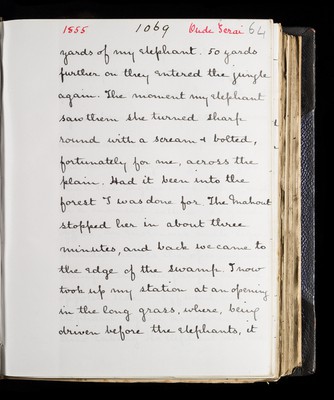 1855 1069 Oude Terai 64
yards of my elephant. 50 yards
further on they entered the jungle
again. The moment my elephant
saw them she turned sharp
round with a scream & bolted,
fortunately for me, across the
plain. Had it been into the
forest I was done for. The Mahout
stopped her in about three
minutes, and back we came to
the edge of the swamp. I now
took up my station at an opening
in the long grass, where, being
driven before the elephants, it